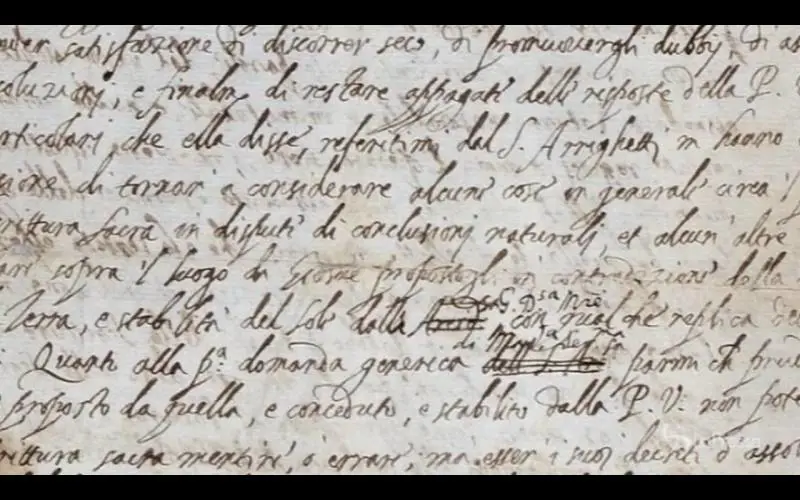 satisfazione di discorrer seco, di promuovergli dubbij, di as
soluzioni, e finalm.e di restare appagati delle risposte della P. V
rticolari che ella disse, referitimi dal S. Arrighetti m hanno
sione di tornar' a considerare alcune cose in generale circa 'l
rittura sacra in dispute di conclusioni naturali, et alcun' altre
are sopra 'l luogo di Giosue propostogli in contradizione della
Terra, e stabilità del Sole dalla con qualche replica
di
Quanto alla p.a domanda generica parmi che prud
proposto da quella, e conceduto, e stabilito dalla P. V: non pote
rittura sacra mentire, o errare, ma esser i suoi decreti d' assol